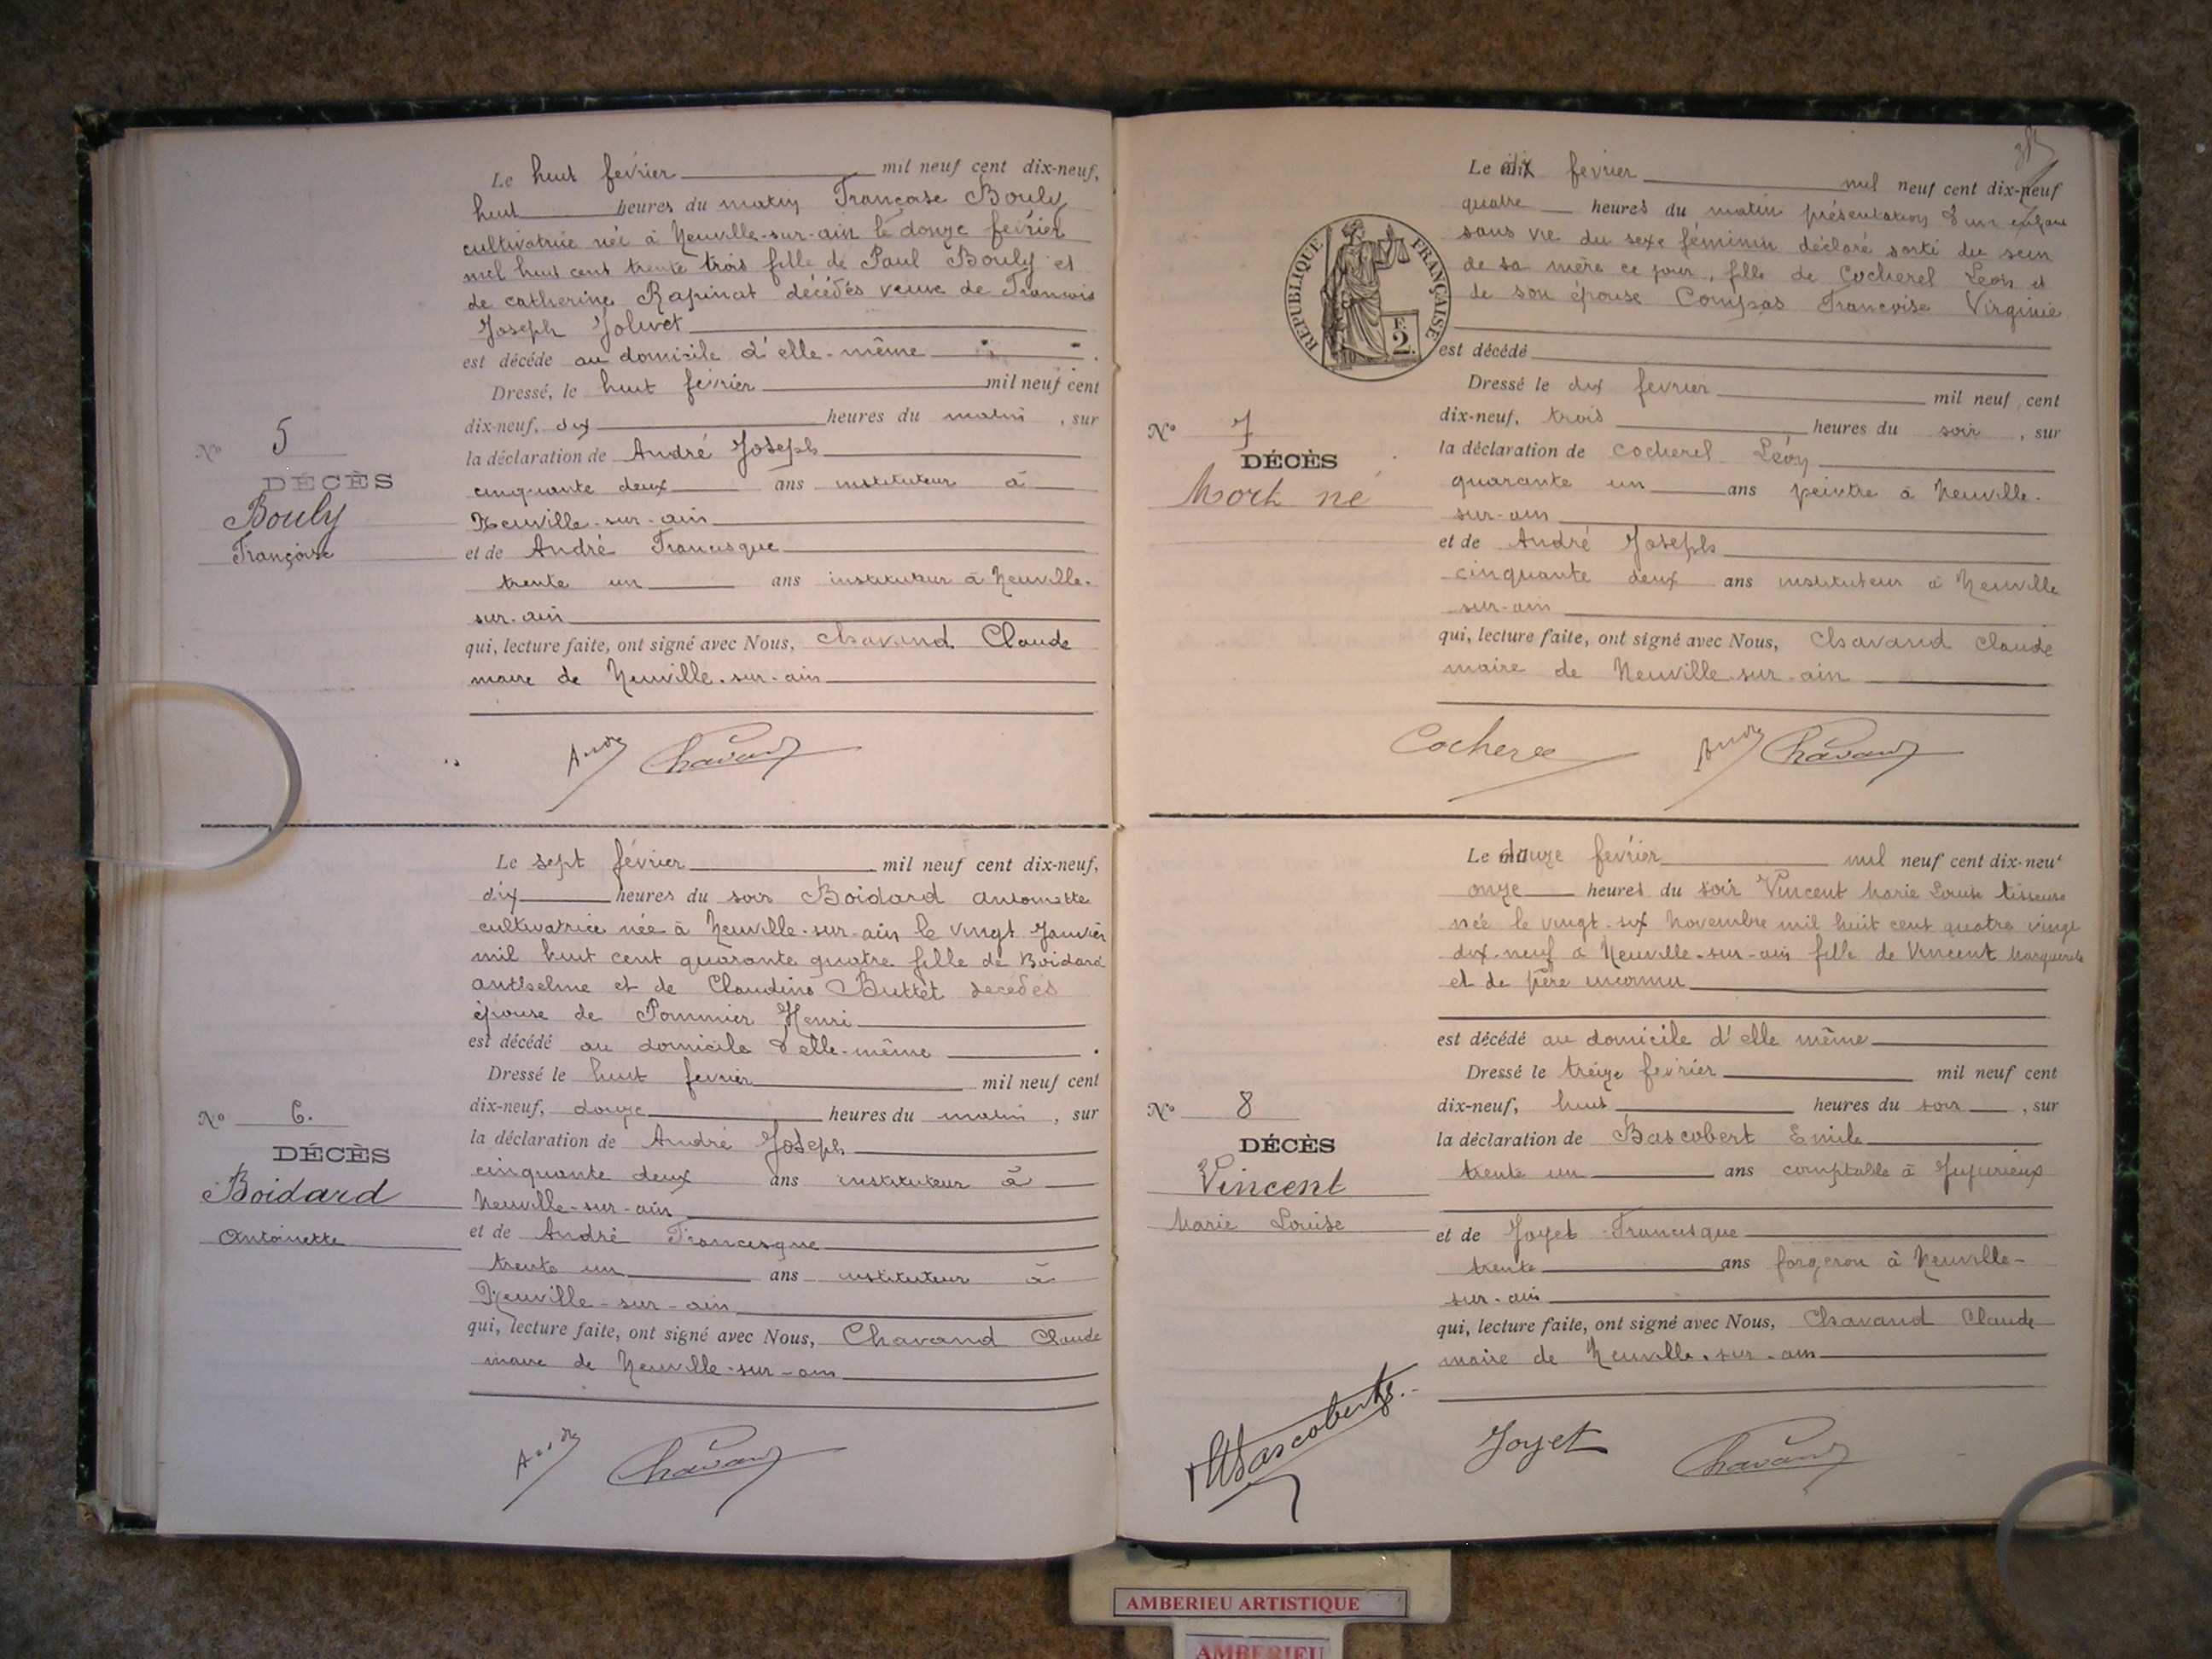 Le huit février mil neuf cent dix-neuf,
huit heures du matin Françoise Bouly
cultivatrice née à Neuville-sur-ain le douze février
mil huit cent trente trois fille de Paul Bouly et
de catherine Rapinat décédés veuve de François
Joseph Jolivet
est décédé au domicile d'elle-même
Dressé, le huit février mil neuf cent
dix-neuf, dix heures du matin, sur
la déclaration de André Joseph
cinquante deux ans instituteur à
Neuville-sur-ain
et de André Francisque
trente un ans instituteur à Neuville-
sur-ain
qui, lecture faite, ont signé avec Nous, Chavand Claude
maire de Neuville-sur-ain
André Chavand
N° 5
DÉCÈS
Bouly
Françoise
Le sept février mil neuf cent dix-neuf,
dix heures du soir Boidard antoinette
cultivatrice née à Neuville-sur-ain le vingt Janvier
mil huit cent quarante quatre fille de Boidard
anthelme et de Claudine Buttet décédés
épouse de Pommier Henri
est décédé au domicile d'elle-même
Dressé le huit février mil neuf cent
dix-neuf, douze heures du matin, sur
la déclaration de André Joseph
cinquante deux ans instituteur à
Neuville-sur-ain
et de André Francisque
trente un ans instituteur à
Neuville-sur-ain
qui, lecture faite, ont signé avec Nous, Chavand Claude
maire de Neuville-sur-ain
André Chavand
N° 6.
DÉCÈS
Boidard
Antoinette
Le dix février mil neuf cent dix-neuf
quatre heures du matin présentation d'un enfant
sans vie du sexe féminin déclaré sorti du sein
de sa mère ce jour, fille de Cocherel Léon et
de son épouse Compas Francoise Virginie
est décédé
Dressé le dix février mil neuf cent
dix-neuf, trois heures du soir, sur
la déclaration de Cocherel Léon
quarante un ans peintre à Neuville-
sur-ain
et de André Joseph
cinquante deux ans instituteur à Neuville
sur-ain
qui, lecture faite, ont signé avec Nous, Chavand Claude
maire de Neuville-sur-ain
Cocherel André Chavand
RÉPUBLIQUE FRANÇAISE
F.
2.
N° 7
DÉCÈS
Mort né
Le douze février mil neuf cent dix-neuf
onze heures du soir Vincent Marie Louise tisseuse
née le vingt-six Novembre mil huit cent quatre vingt
dix-neuf à Neuville-sur-ain fille de Vincent Marguerite
et de père inconnu
est décédé au domicile d'elle même
Dressé le treize février mil neuf cent
dix-neuf, huit heures du soir, sur
la déclaration de Bascobert Emile
trente un ans comptable à Jujurieux
et de Joyet Francisque
trente ans forgeron à Neuville-
sur-ain
qui, lecture faite, ont signé avec Nous, Chavand Claude
maire de Neuville-sur-ain
Bascobert Joyet Chavand
N° 8
DÉCÈS
Vincent
Marie Louise
AMBERIEU ARTISTIQUE
AMBERIEU